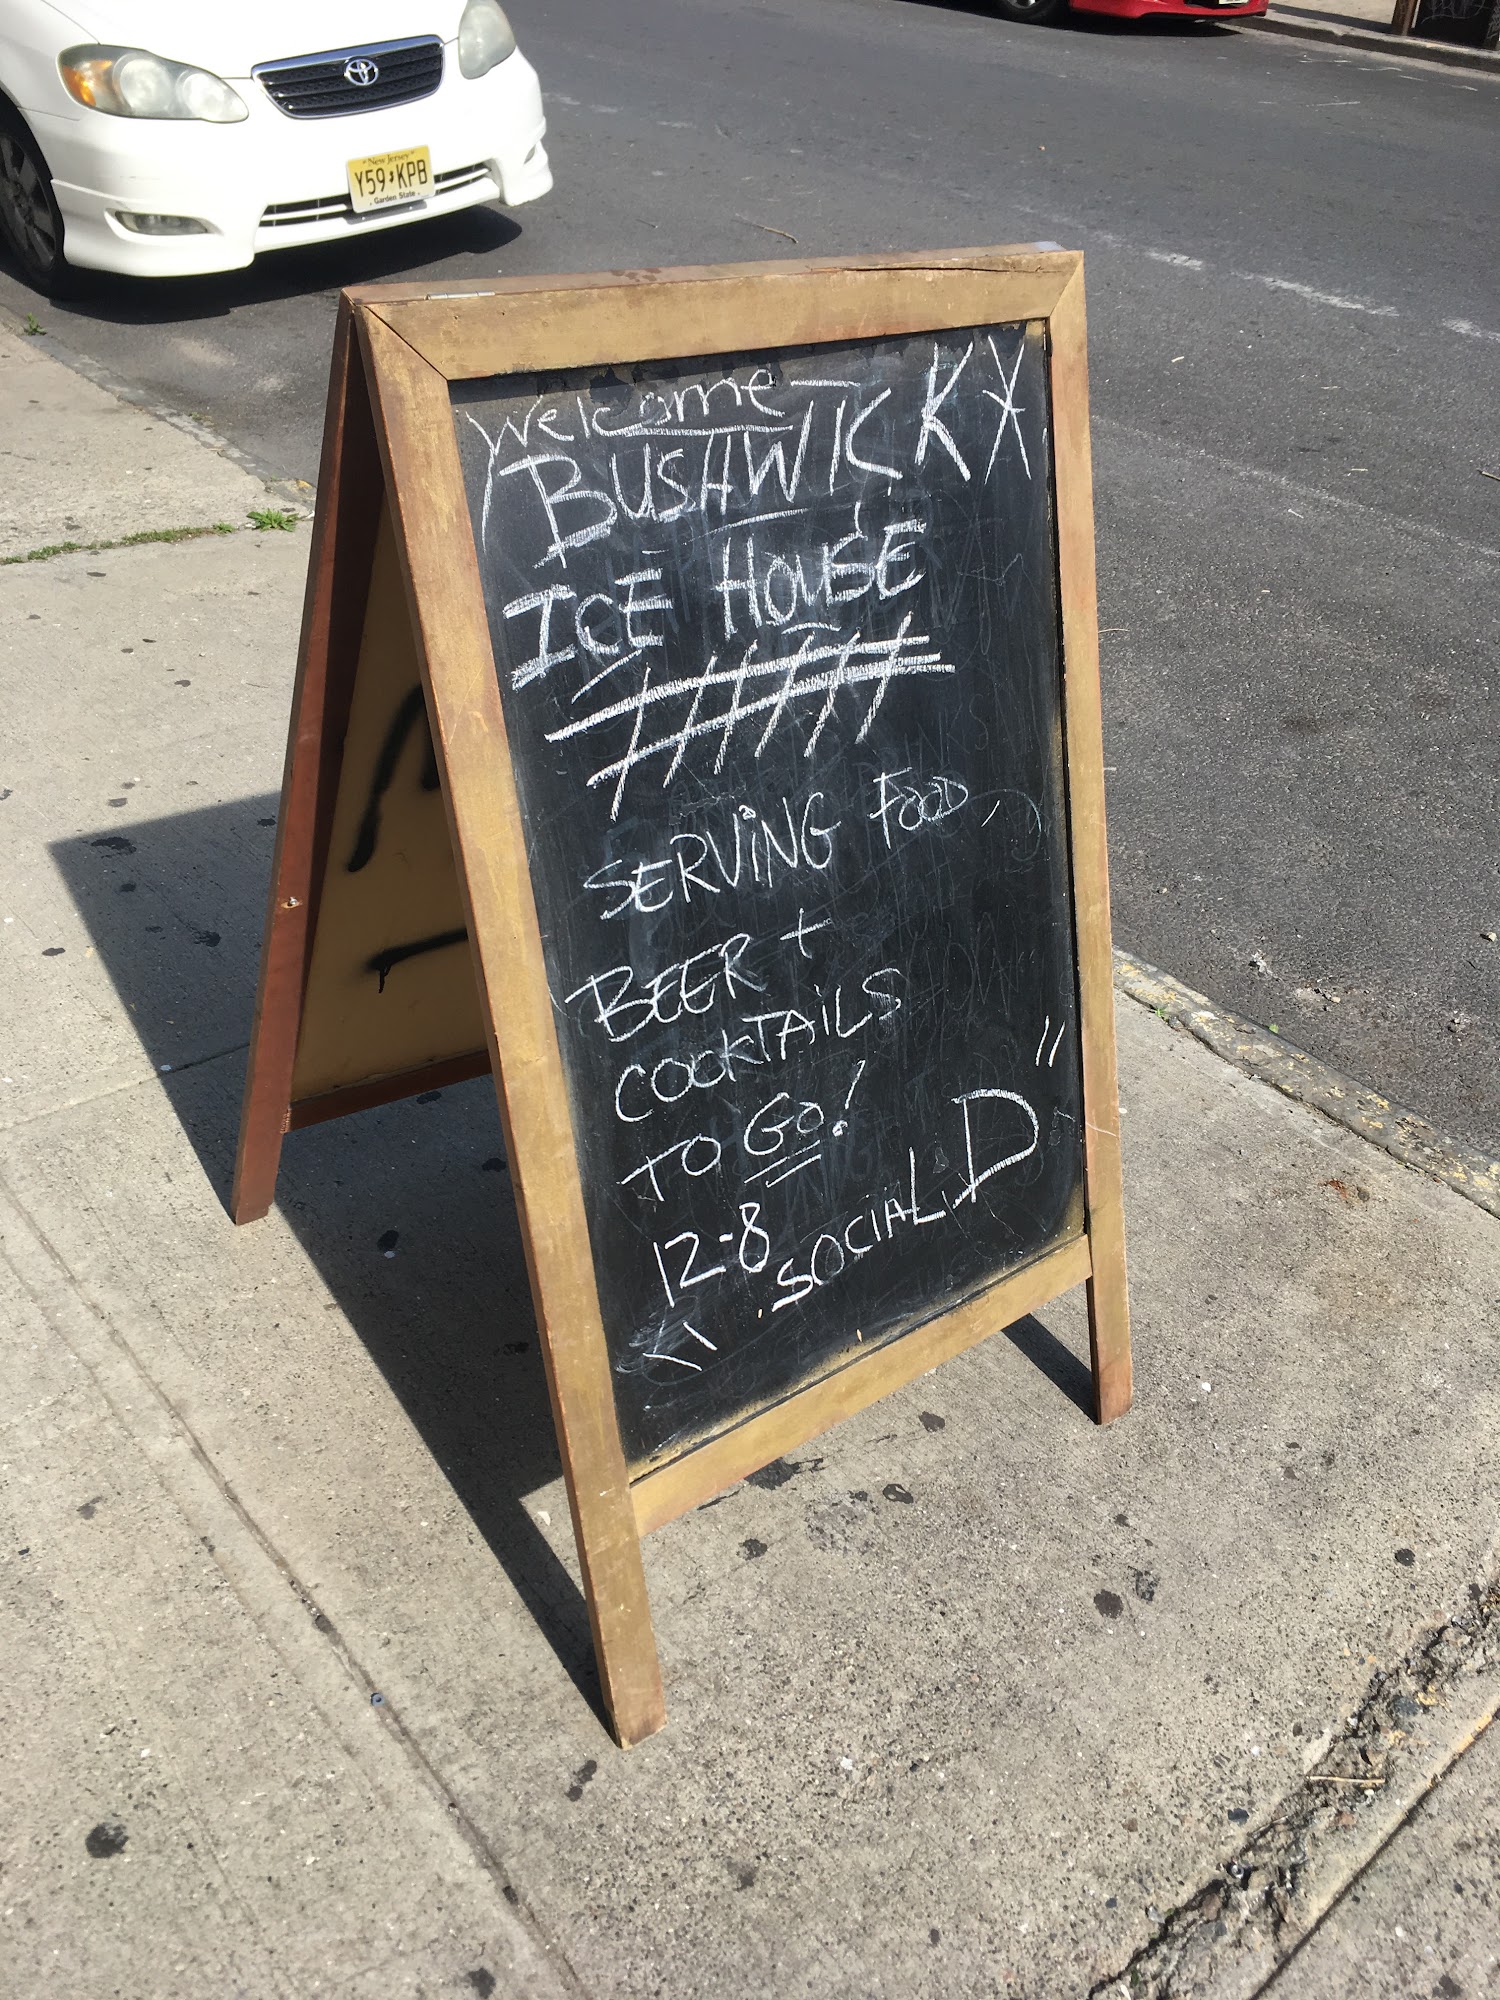 New Jersey
Y59 KPB
Garden State
Welcome
BUSHWICK
ICE HOUSE
SERVING FOOD,
BEER +
COCKTAILS
TO GO!
12-8
"SOCIAL D"